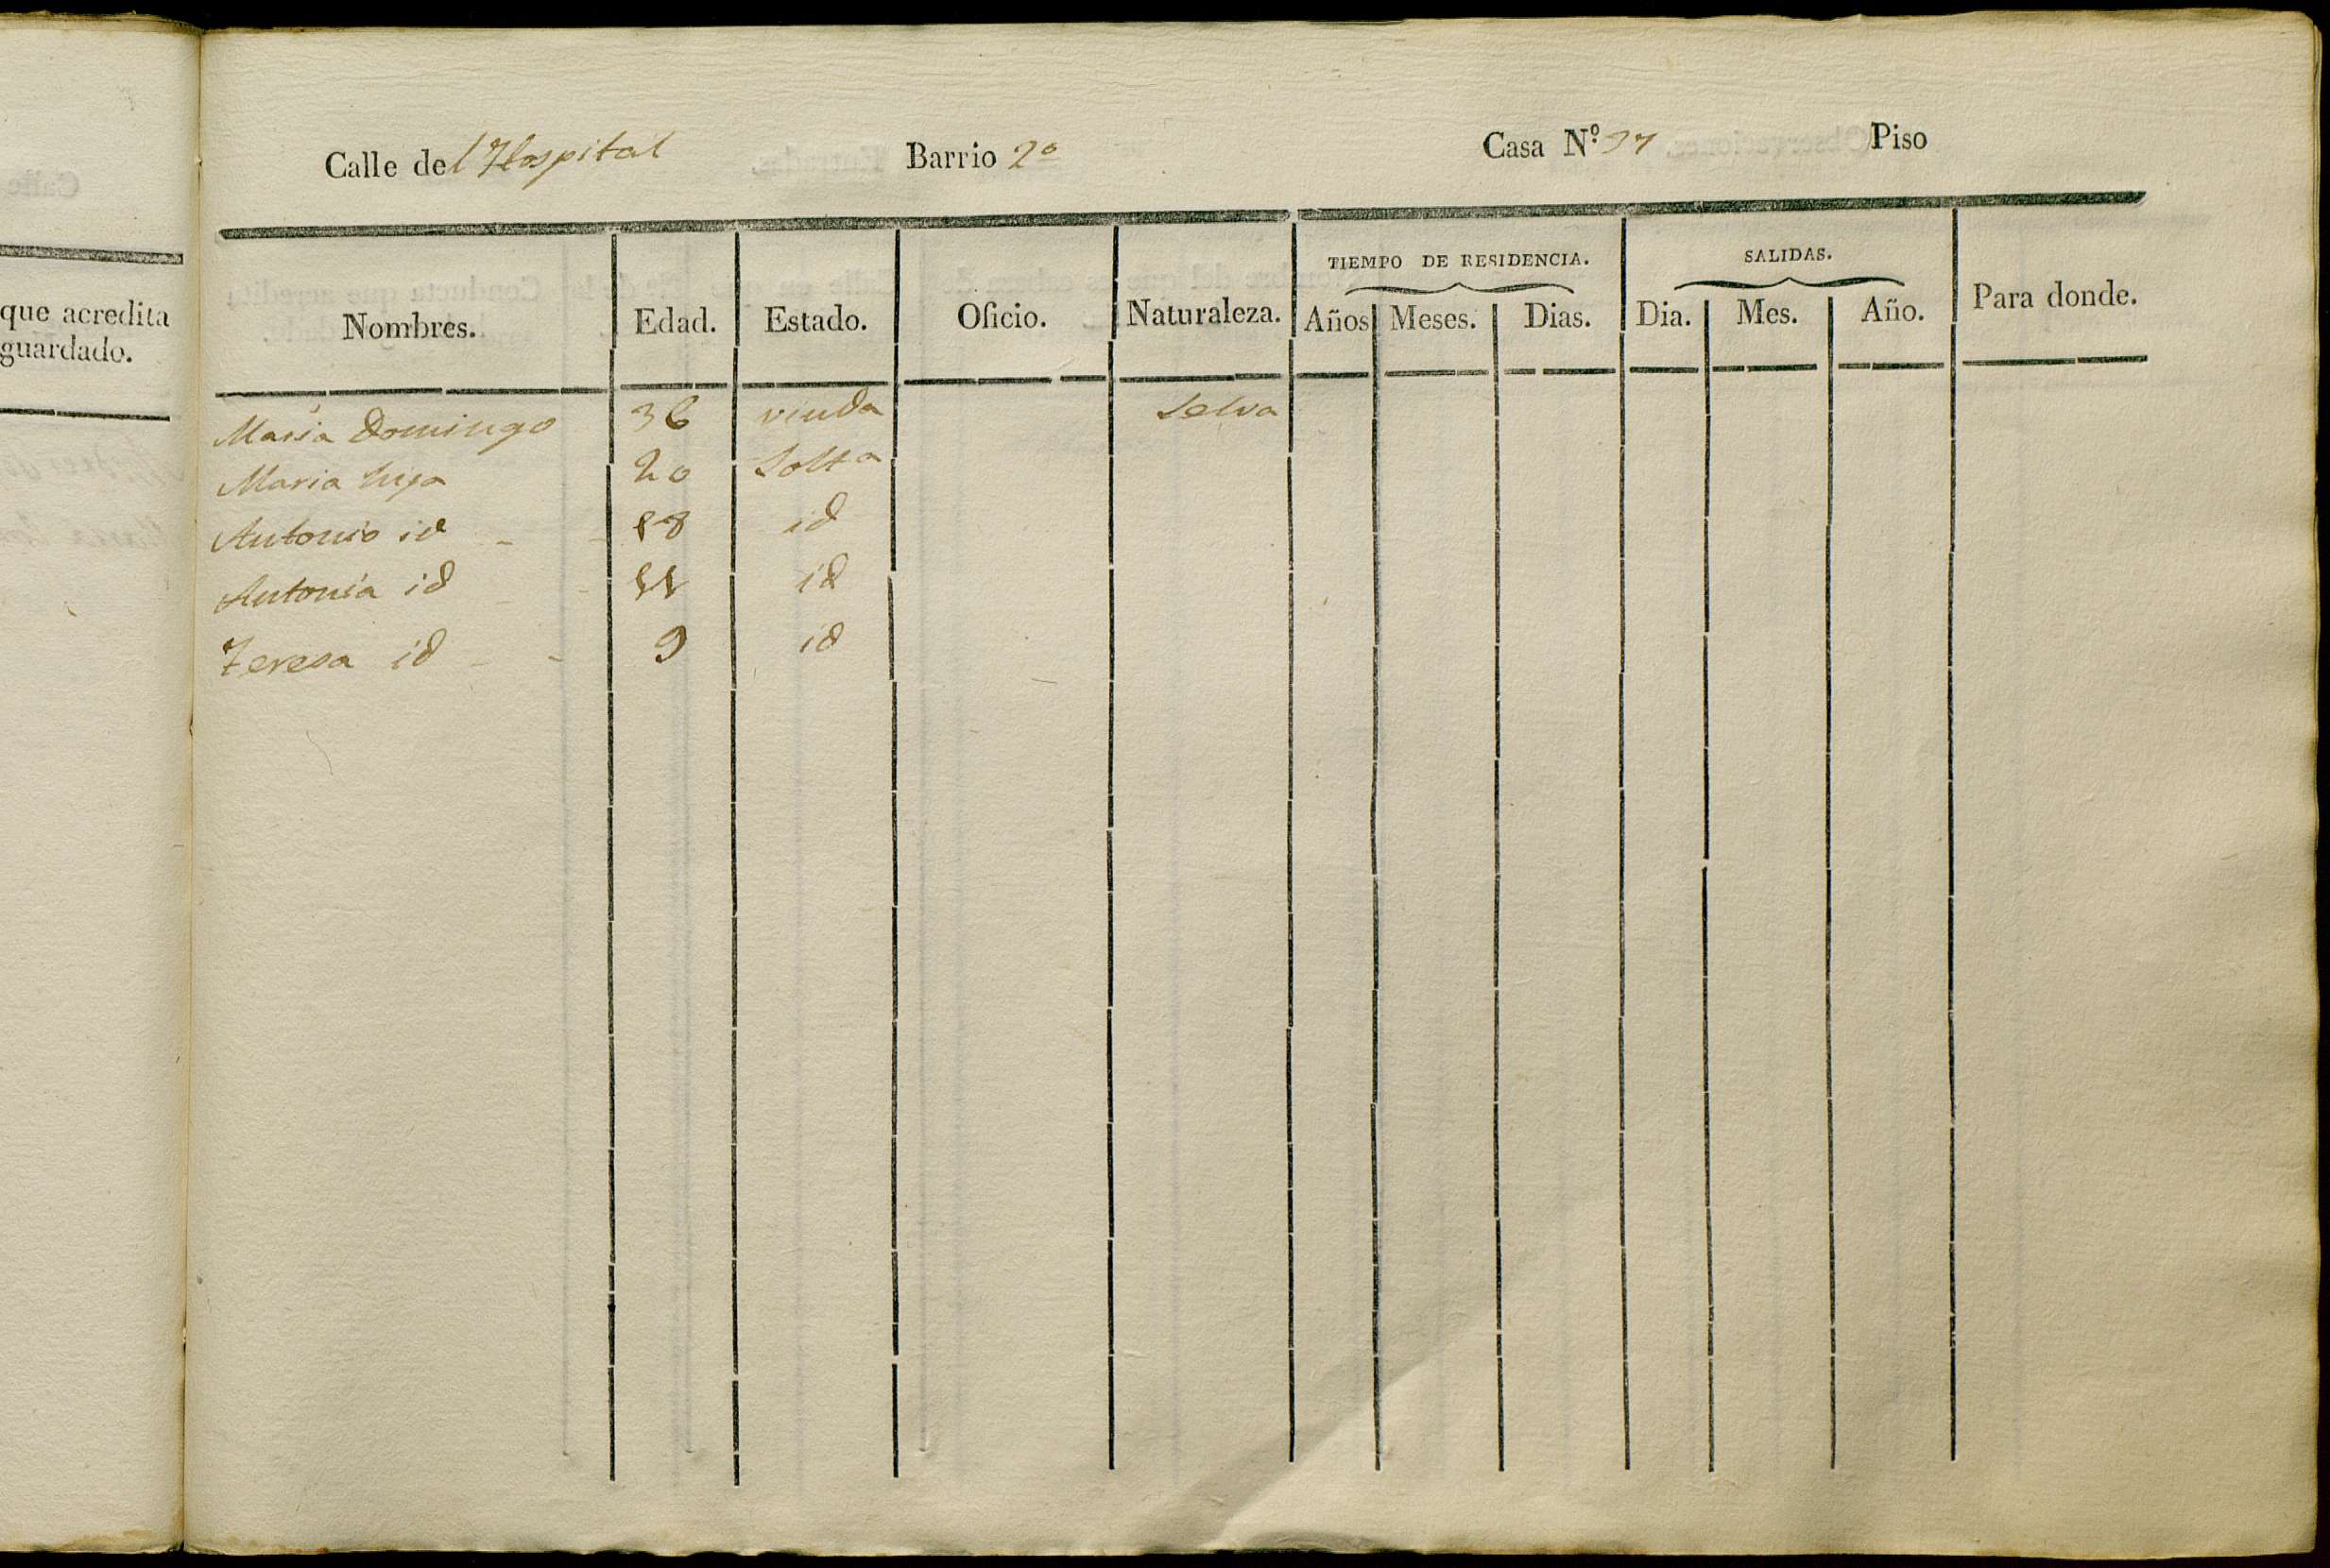 que acredita
guardado.
Calle del Hospital Barrio 2º Casa N.º 37 Piso
TIEMPO DE RESIDENCIA. SALIDAS.
Nombres. Edad. Estado. Oficio. Naturaleza. Años Meses. Dias. Dia. Mes. Año. Para donde.
Maria Domingo 36 viuda Selva
Maria hija 20 Solta
Antonio id 18 id
Antonia id 11 id
Teresa id 9 id